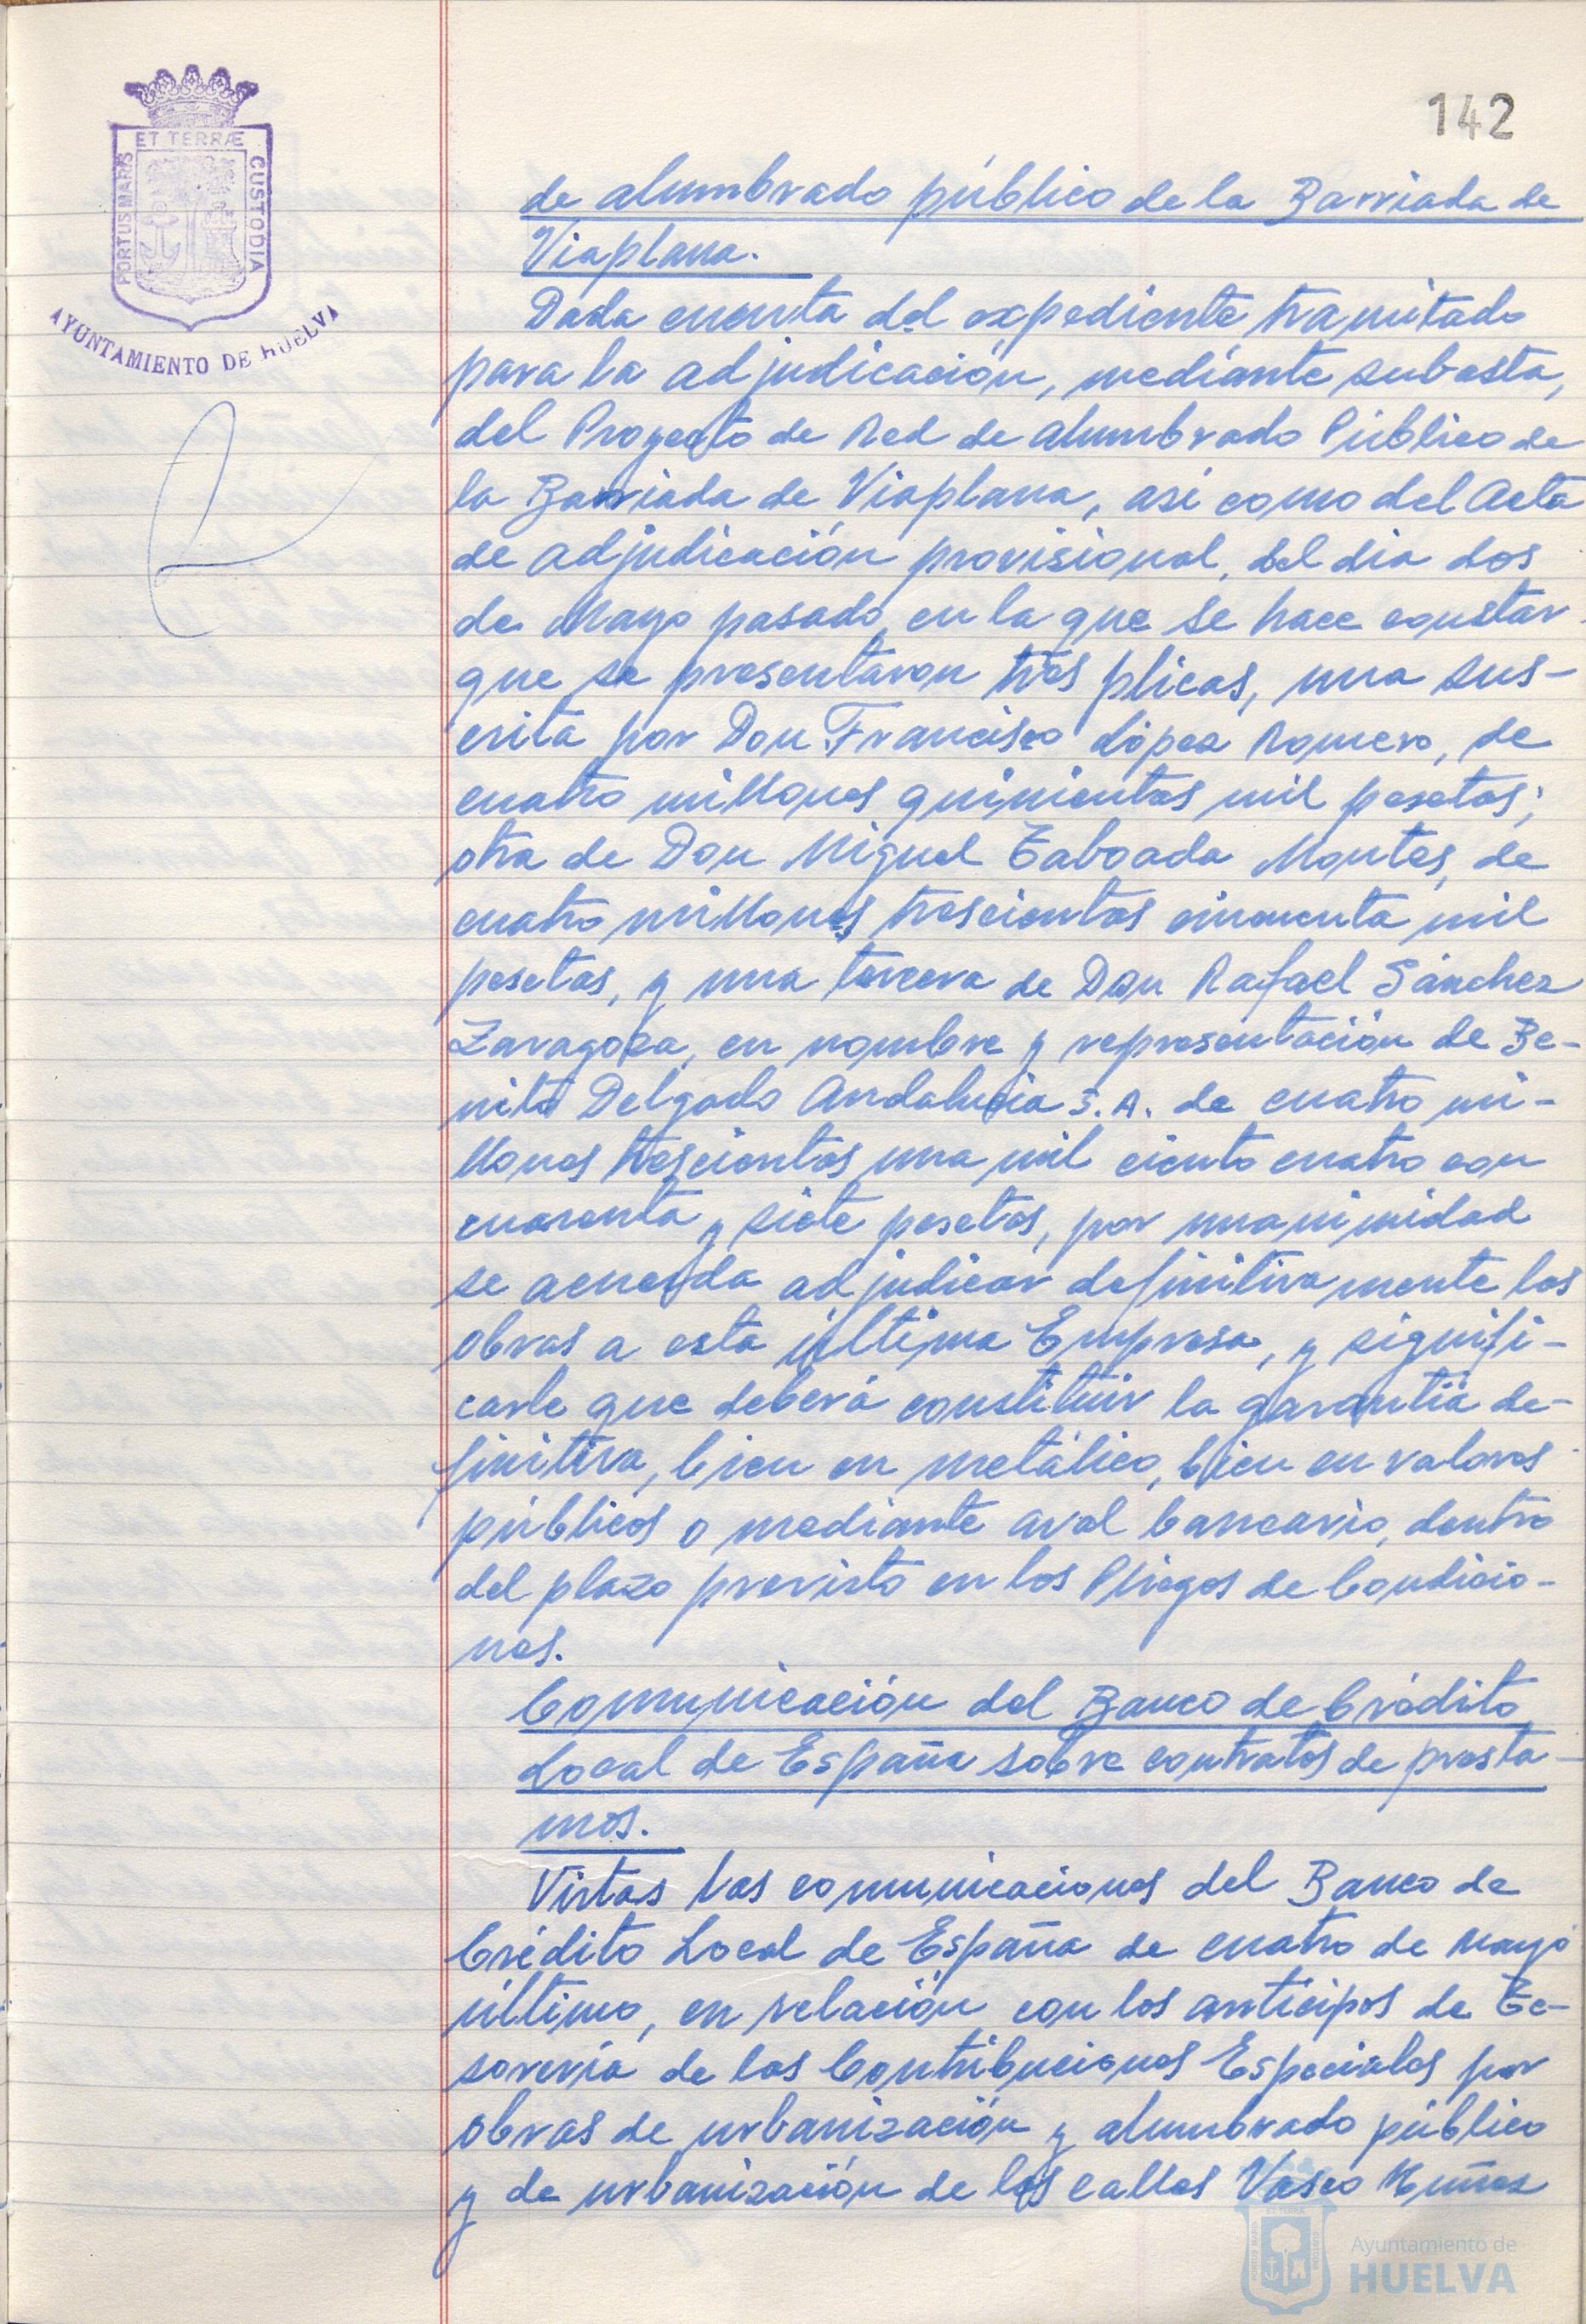 142
ET TERRÆ
PORTUS MARIS
CUSTODIA
AYUNTAMIENTO DE HUELVA
de alumbrado público de la Barriada de
Viaplana.
Dada cuenta del expediente tramitado
para la adjudicación, mediante subasta,
del Proyecto de Red de alumbrado Público de
la Barriada de Viaplana, asi como del Acta
de adjudicación provisional, del dia dos
de Mayo pasado, en la que se hace constar
que se presentaron tres plicas, una sus-
crita por Don Francisco López Romero, de
cuatro millones quinientas mil pesetas;
otra de Don Miguel Taboada Montes, de
cuatro millones trescientas cincuenta mil
pesetas, y una tercera de Don Rafael Sánchez
Zaragoza, en nombre y representación de Be-
nito Delgado Andalucia S.A. de cuatro mi-
llones trescientas una mil ciento cuatro con
cuarenta y siete pesetas, por unanimidad
se acuerda adjudicar definitivamente las
obras a esta última Empresa, y signifi-
carle que deberá constituir la garantía de-
finitiva, bien en metálico, bien en valores
públicos o mediante aval bancario, dentro
del plazo previsto en los Pliegos de Condicio-
nes.
Comunicación del Banco de Crédito
Local de España sobre contratos de presta-
mos.
Vistas las comunicaciones del Banco de
Crédito Local de España de cuatro de Mayo
último, en relación con los anticipos de Te-
sorería de las Contribuciones Especiales por
obras de urbanización y alumbrado público
y de urbanización de las calles Vasco Nuñez
Ayuntamiento de
HUELVA